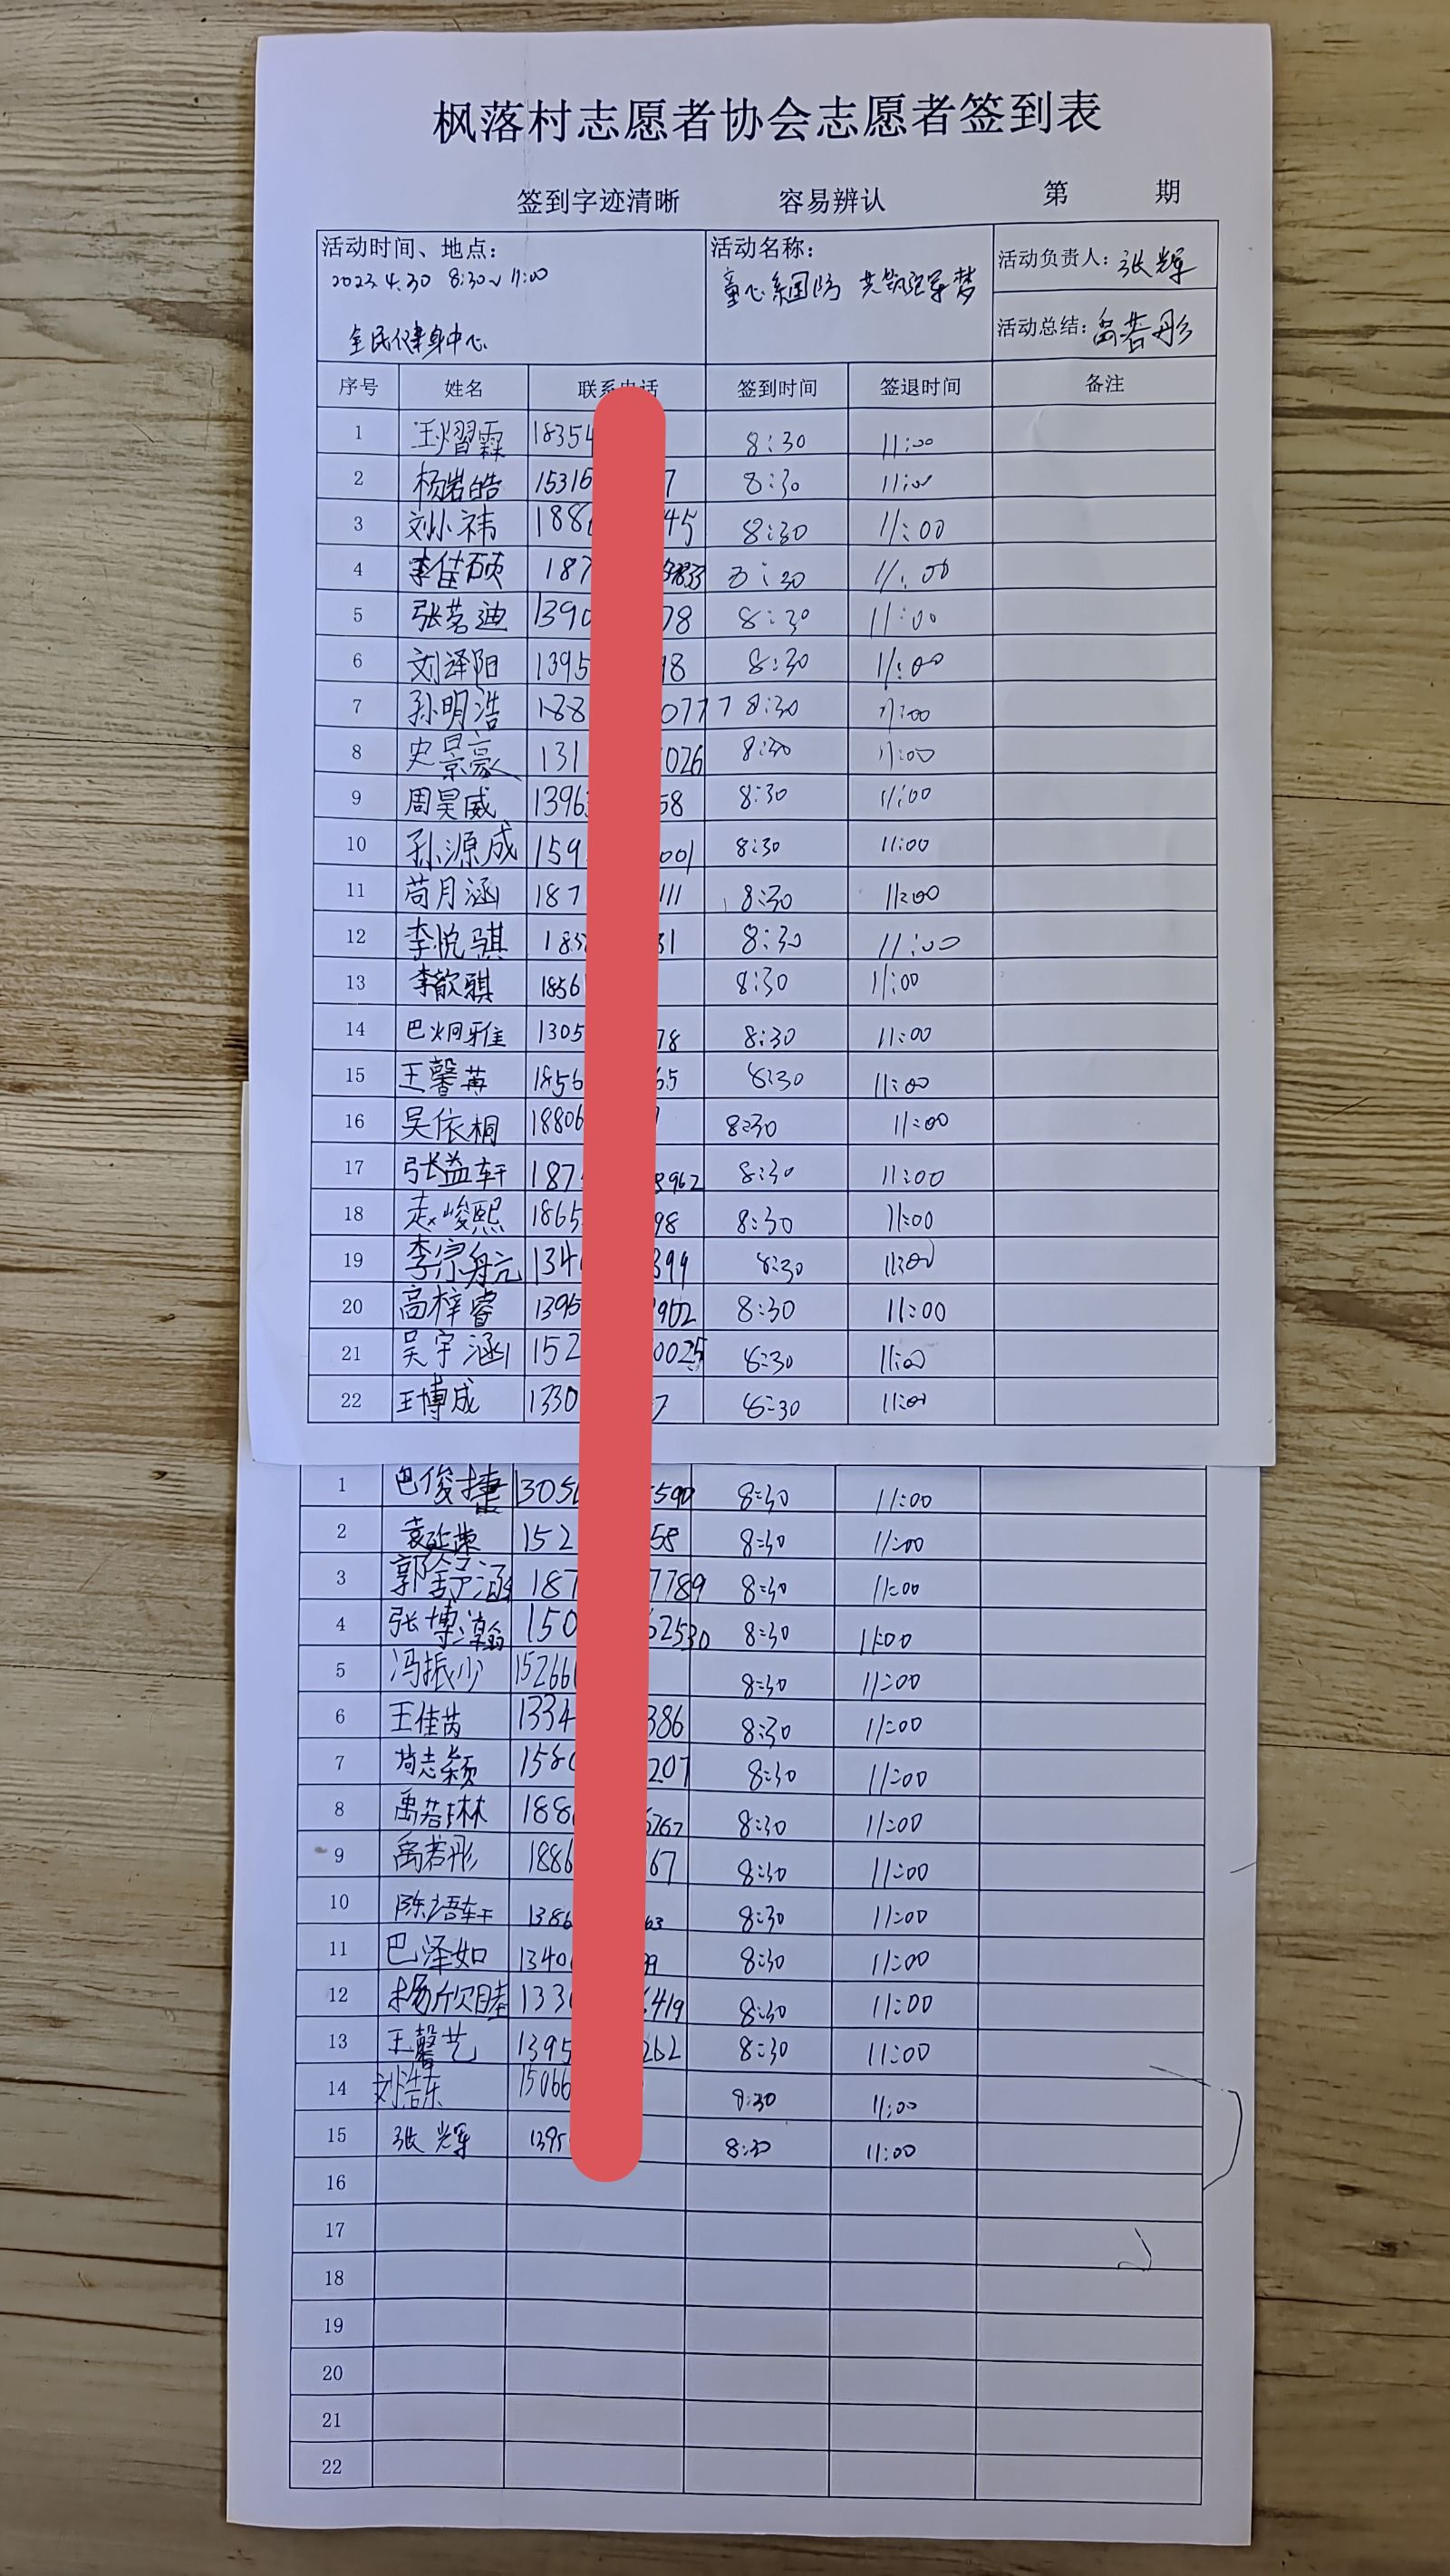 枫落村志愿者协会志愿者签到表
签到字迹清晰 容易辨认 第 期
活动时间、地点： 活动名称： 活动负责人：张辉
2023.4.30 8:30~11:00 童心系国防 共筑强军梦
全民健身中心 活动总结：禹若彤
序号 姓名 联系电话 签到时间 签退时间 备注
1 王熠霖 18354 8:30 11:00
2 杨岩皓 15316 7 8:30 11:00
3 刘小祎 188 45 8:30 11:00
4 李佳硕 187 3833 8:30 11:00
5 张茗迪 1390 78 8:30 11:00
6 刘泽阳 1395 18 8:30 11:00
7 孙明浩 188 0777 8:30 11:00
8 史景豪 131 026 8:30 11:00
9 周昊威 1396 58 8:30 11:00
10 孙源成 159 001 8:30 11:00
11 苘月涵 187 111 8:30 11:00
12 李悦骐 185 31 8:30 11:00
13 李歆骐 1856 8:30 11:00
14 巴炯雅 1305 78 8:30 11:00
15 王馨苒 1856 65 8:30 11:00
16 吴依桐 18806 8:30 11:00
17 张益轩 187 8962 8:30 11:00
18 赵峻熙 1865 98 8:30 11:00
19 李宗航 134 399 8:30 11:00
20 高梓睿 1395 902 8:30 11:00
21 吴宇涵 152 0025 8:30 11:00
22 王博成 1330 7 8:30 11:00
1 巴俊捷 1305 590 8:30 11:00
2 袁延 152 58 8:30 11:00
3 郭舒涵 187 7789 8:30 11:00
4 张博瀚 150 62530 8:30 11:00
5 冯振少 15266 8:30 11:00
6 王佳芮 1334 386 8:30 11:00
7 尚志颖 158 207 8:30 11:00
8 禹若琳 188 6767 8:30 11:00
9 禹若彤 1886 67 8:30 11:00
10 陈语轩 1386 63 8:30 11:00
11 巴泽如 1340 99 8:30 11:00
12 杨欣睦 133 6419 8:30 11:00
13 王馨艺 1395 262 8:30 11:00
14 刘浩东 15066 8:30 11:00
15 张辉 1395 8:30 11:00
16
17
18
19
20
21
22